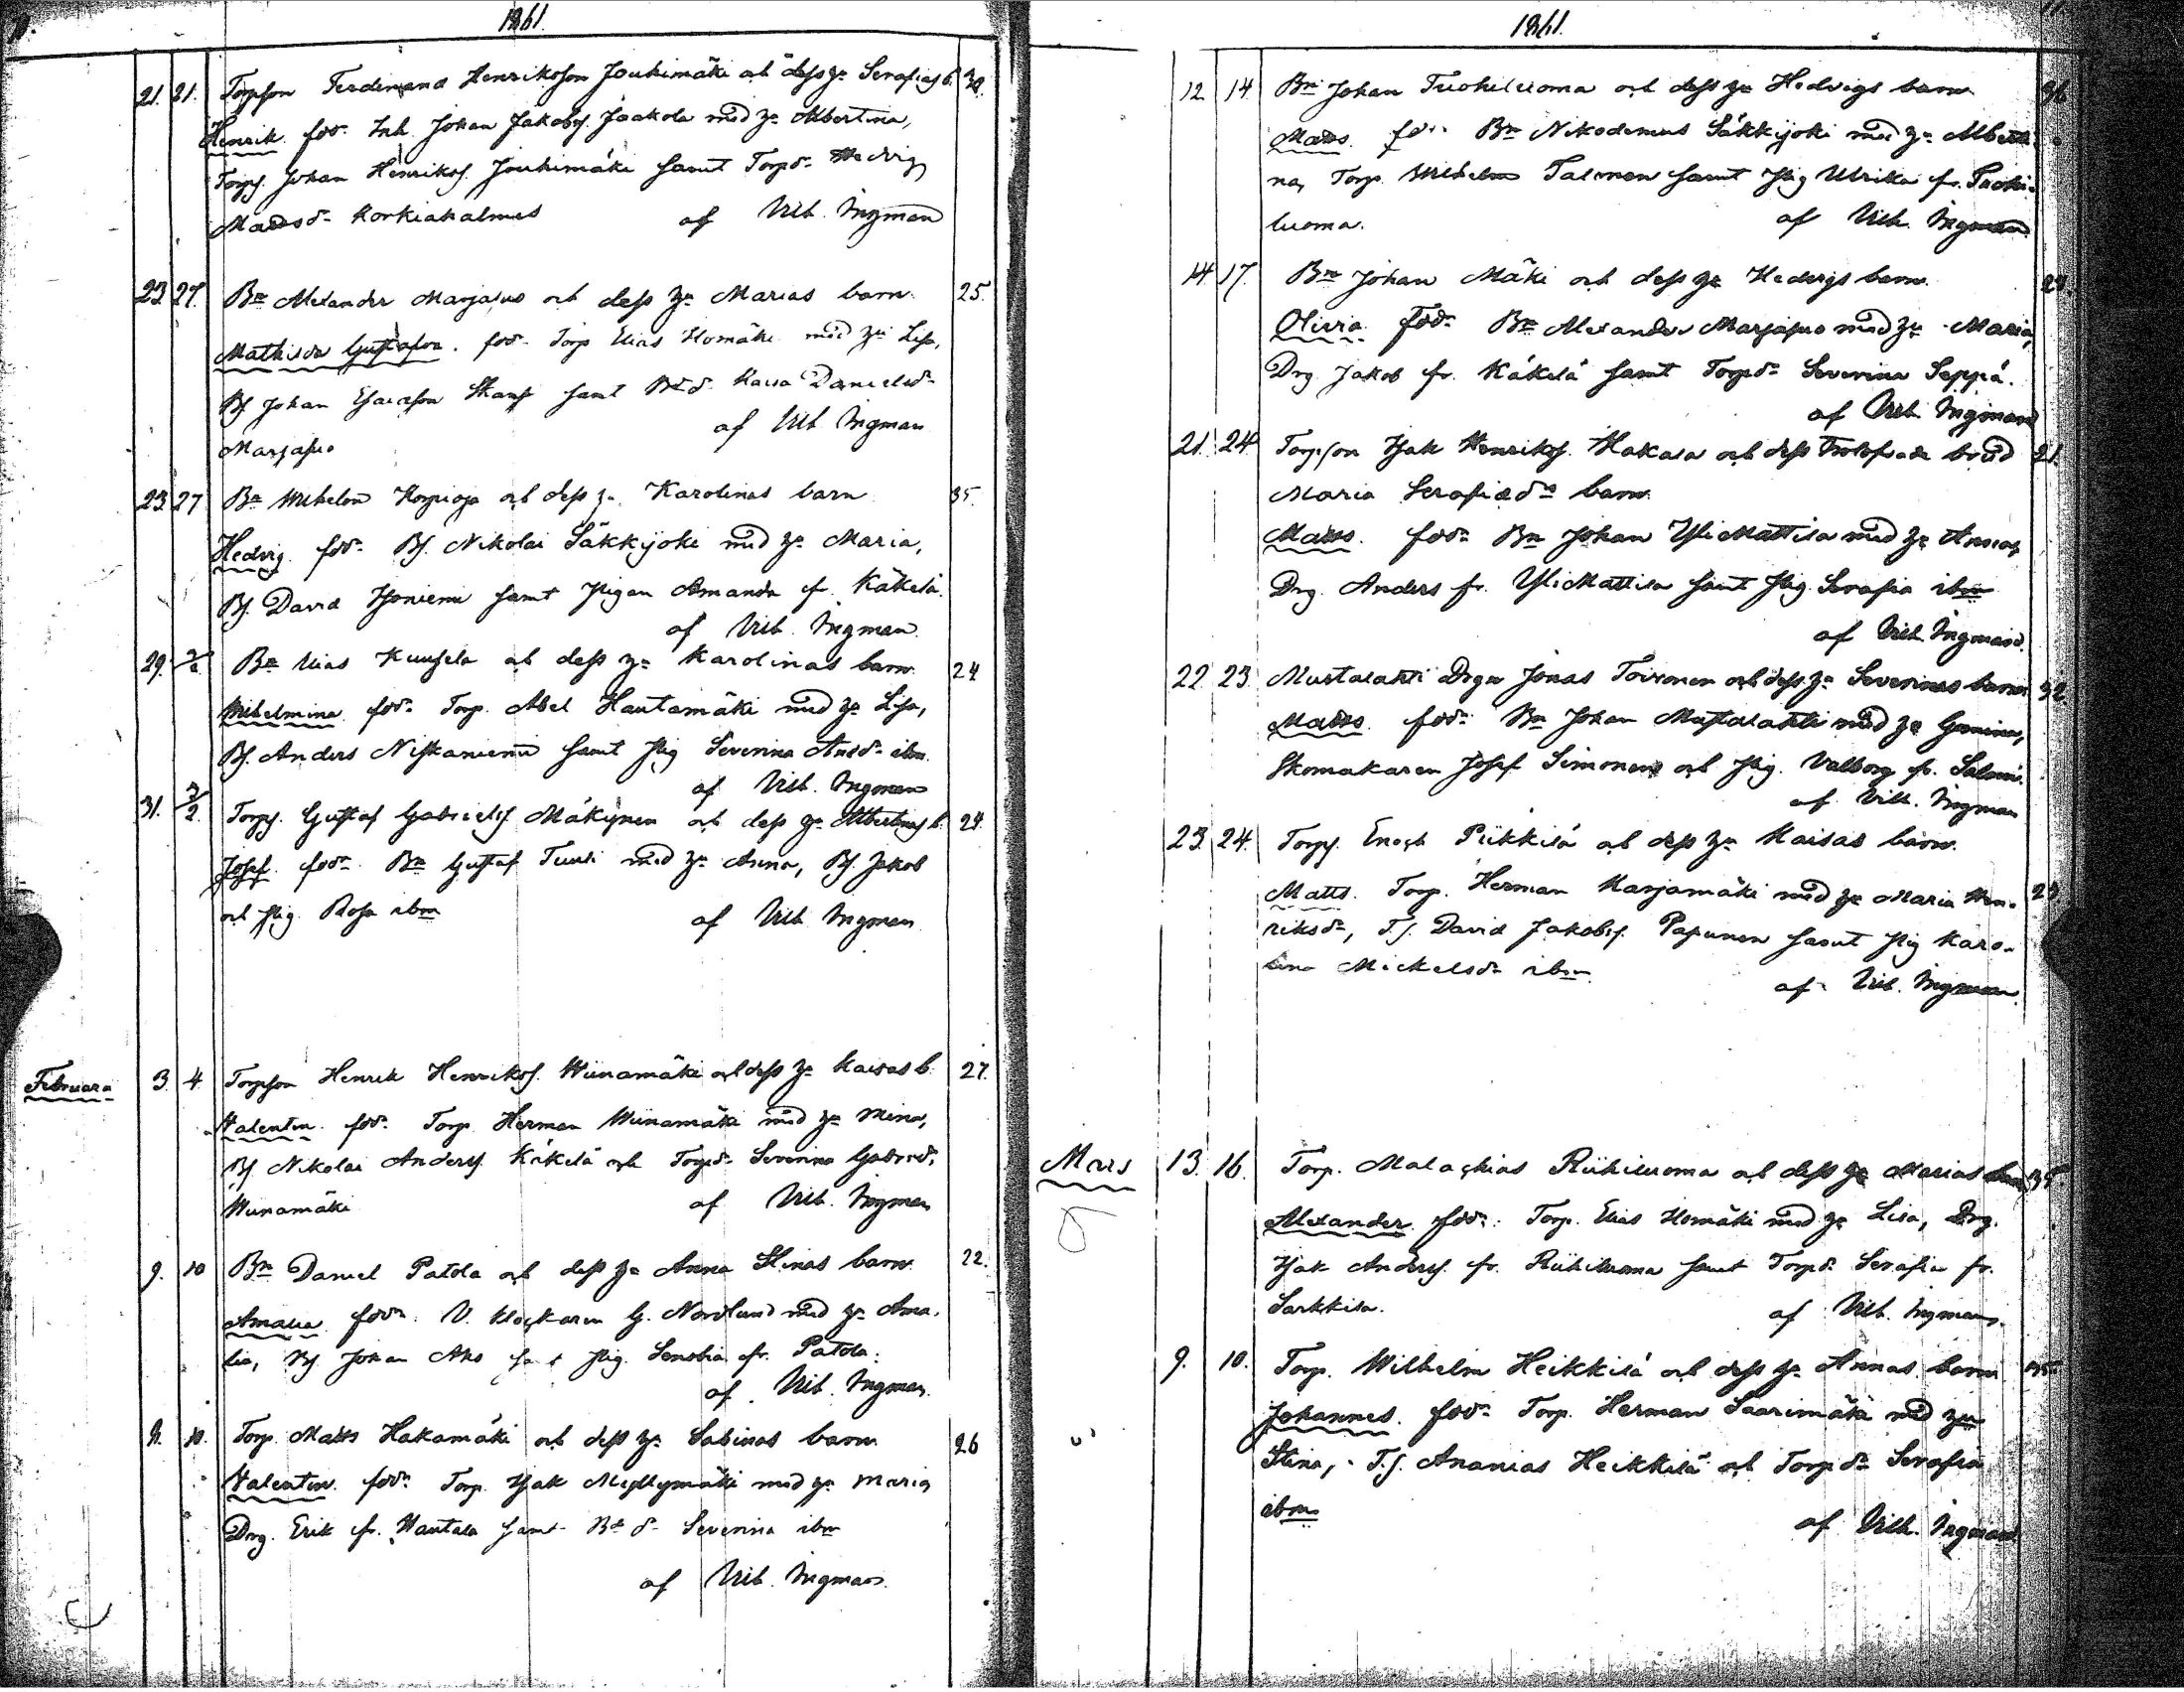 1861.
21. 21. Torpson Ferdinand Henriksson Jouhimäki och dess h:u Serafias b. 30.
Henrik. fadd. Inh. Johan Jakobss. Jaakola med h:u Albertina,
Torps. Johan Henrikss. Jouhimäki samt Torpd:r Hedvig
Mattsd:r Korkiakalmes af Vilh. Ingman
23 27. B:n Alexander Marjapuo och dess h:u Marias barn. 25.
Mathilda Gustafva. fadd. Torp Elias Homäki med h:u Lisa,
Bs Johan Esaiasson Skarp samt Bd:r Kaisa Danielsd:r
Marjapuo af Vilh Ingman
23 27 B:n Wilhelm Korpioja och dess h:u Karolinas barn 35.
Hedvig. fadd:r Bs. Nikolai Säkkijoki med h:u Maria,
Bs. David Isoniemi samt pigan Amanda fr. Käkelä.
af Vilh. Ingman.
29. 2/2 B:n Elias Kuusela och dess h:u Karolinas barn. 24
Wilhelmina. fadd:r Torp. Abel Hautamäki med h:u Lisa,
Bs. Anders Niskaniemi samt pig Severina Andd:r ibm.
af Vilh. Ingman
31. 3/2. Torps. Gustaf Gabrielss Mäkynen och dess h:u Albertinas b. 24.
Josef. fadd:r B:n Gustaf Tuuri med h:u Anna, Bs. Jakob
och pig. Rosa ibm af Vilh Ingman
Februari 3. 4. Torpson Henrik Henrikss. Wiinamäki och dess h:u Kaisas b. 27.
Valentin. fadd:r Torp Herman Wiinamäki med h:u Mina,
Bs. Nikolai Anderss. Käkelä och Torpd:r Severina Gabrid:r
Wiinamäki af Vilh. Ingman
9. 10 B:n Daniel Patola och dess h:u Anna Stinas barn. 22.
Amalia. fadd:r V. Klockaren G. Nordlund med h:u Ama-
lia, Bs. Johan Aho samt pig. Senobia fr. Patola.
af Vilh. Ingman.
9. 10. Torp. Matts Hakamäki och dess h:u Sabinas barn. 26
Valentin. fadd:r Torp. Isak Myllymäki med h:u Maria
Drg. Erik fr. Hautala samt Bd:r Severina ibm
af Vilh. Ingman.
1861.
12 14. B:n Johan Tuohiluoma och dess h:u Hedvigs barn
Matts. fadd:r B:n Nikodemus Säkkijoki med h:u Alberti-
na, Torp. Wilhelm Talonen samt pig Ulrika fr. Tuohi-
luoma. af Vilh. Ingman
14 17. B:n Johan Mäki och dess h:u Hedvigs barn. 27.
Olivia. fadd:r B:n Alexander Marjapuo med h:u Maria,
Drg. Jakob fr. Käkelä samt Torpd:r Severina Seppä.
af Vilh. Ingman
21. 24. Torpson Isak Henrikss. Hakala och dess trolofvade brud 21.
Maria Serafiasd:r barn
Matts. fadd:r B:n Johan YliMattila med h:u Anna,
Drg. Anders fr. YliMattila samt pig. Serafia ibm
af Vilh. Ingman.
22 23. Mustalahti Drgn Jonas Toivonen och dess h:u Severinas barn 32.
Matts. fadd:r B:n Johan Mustalahti med h:u Gemina,
Skomakaren Josef Simonen och pig. Valborg fr. Salmi.
af Vilh. Ingman
23 24. Torps. Enoch Piikkilä och dess h:u Kaisas barn.
Matts. Torp. Herman Karjamäki med h:u Maria Hen-
riksd:r, T.s. David Jakobss. Papunen samt pig Karo-
lina Mickelsd:r ibm
af Vilh. Ingman.
Mars 13. 16. Torp. Malachias Riihiluoma och dess h:u Marias barn
Alexander. fadd:r Torp. Elias Homäki med h:u Lisa, Drg.
Isak Anderss. fr. Riihiluoma samt Torpd:r Serafia fr.
Sarkkila. af Vilh. Ingman.
9. 10. Torp. Wilhelm Heikkilä och dess h:u Annas barn
Johannes. fadd:r Torp. Herman Saarimäki med h:u
Stina, T.s. Ananias Heikkilä och Torpd:r Serafia
ibm
af Vilh. Ingman